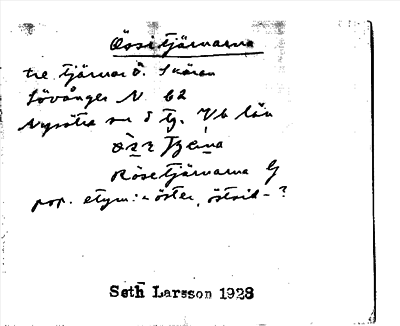 Össitjärnarna
tre tjärnar ö. Skären
Lövånger N 62
Nysätra sn s tg. Vb län
Rösetjärnarna G
pop. etym: öster, östsid- ?
Seth Larsson 1928